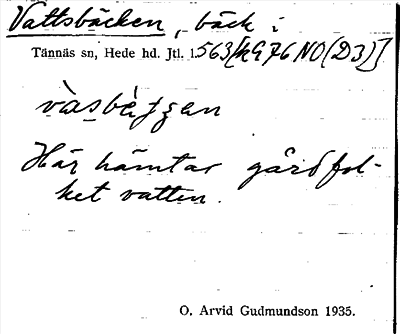 Vattsbäcken, bäck i
Tännäs sn, Hede hd. Jtl. l. 563 [kG 76 NO (D3)]
vàsbètʃen
Här hämtar gårdfol-
ket vatten.
O. Arvid Gudmundson 1935.